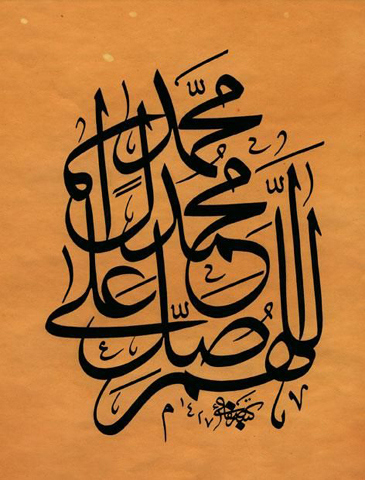 اللّهم صلّ على
محمّد وآل
محمّد
١٤٢٧